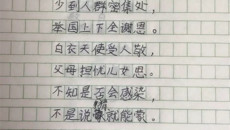 少到人群密集处，
举国上下全谢恩。
白衣天使受人敬，
父母担忧儿女思。
不知是否会感染，
不是说就能歇。